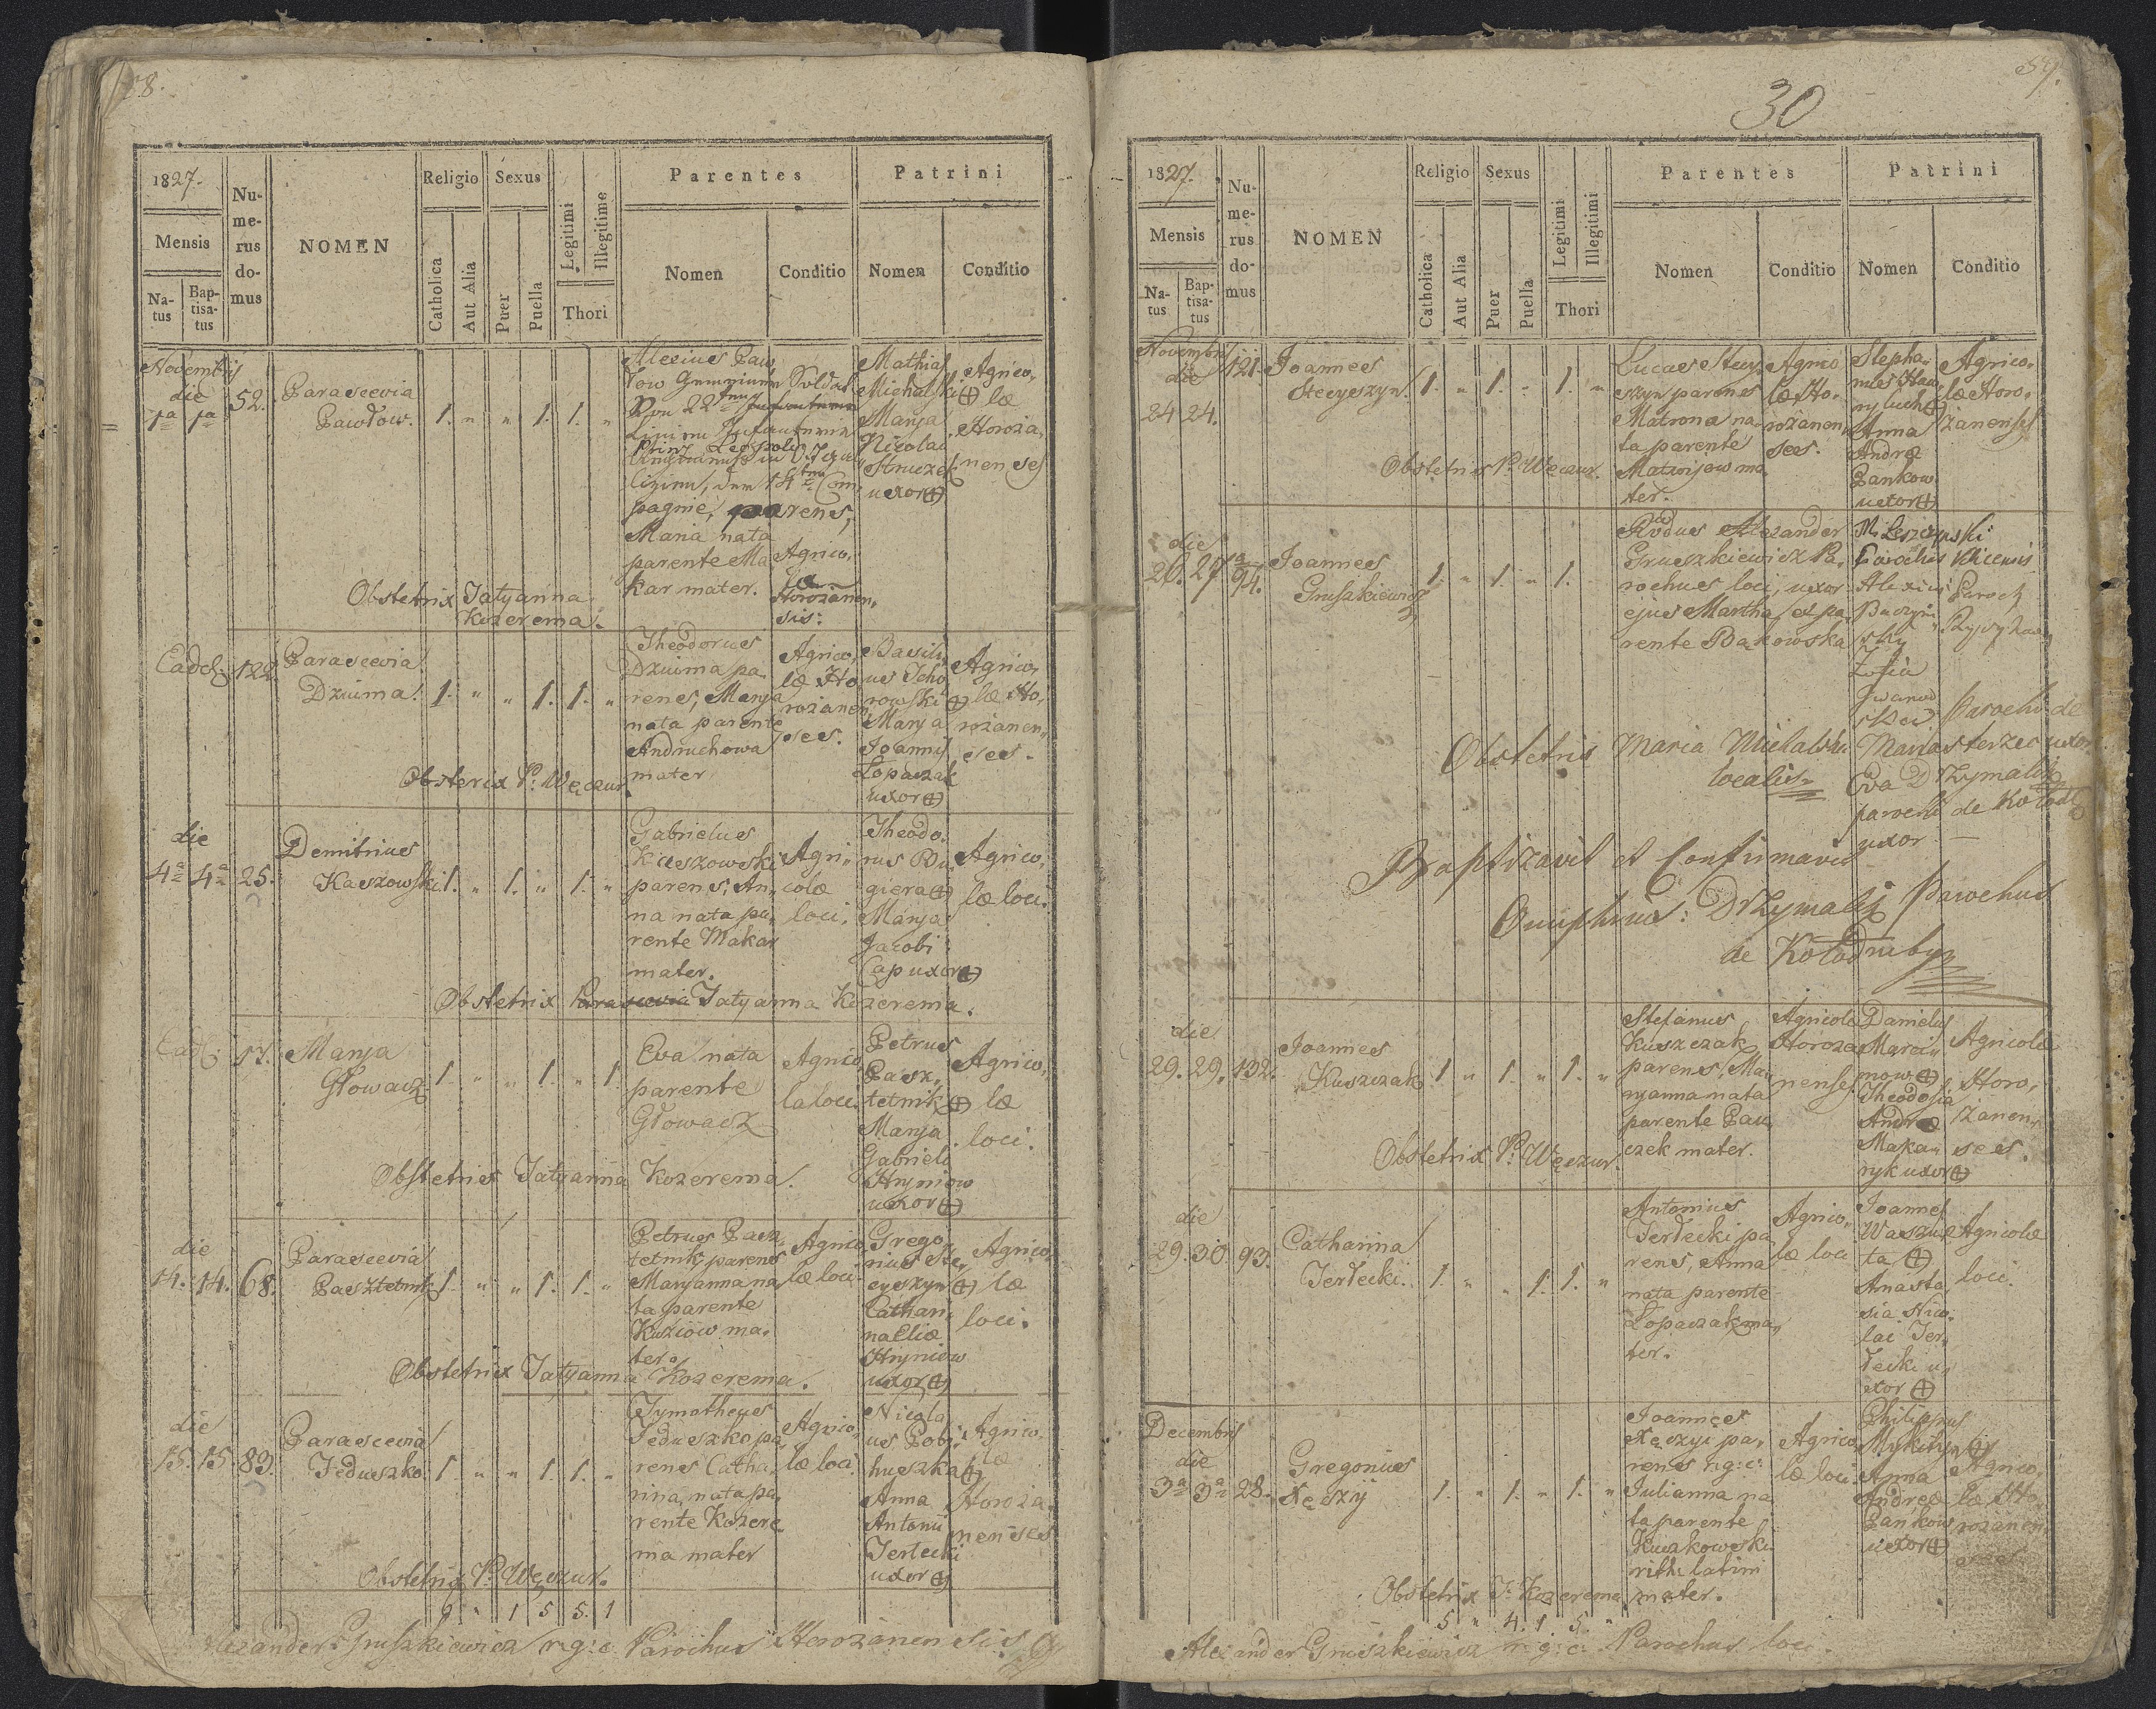 58.
1827.
Mensis
Na-
tus
Bap-
tisa-
tus
Nu-
me-
rus
do-
mus
NOMEN
Religio
Catholica
Aut Alia
Sexus
Puer
Puella
Legitimi
Illegitime
Thori
Parentes
Nomen
Conditio
Patrini
Nomen
Conditio
Novembris
die
1a 1a
52.
Parascevia
Pawłow.
1. " " 1. 1. "
Alexius Paw
łow
22
Infanterie
Prinz Leopold
pagnie, parens,
Maria nata
parente Ma
kar mater.
Soldat
Agrico,
læ
Horożanen,
sis.
Mathias
Michalski
Marya
Nicolai
uxor
Agrico,
læ
Horoża,
nenses
Obstetrix Tatyanna
Kozerema.
Eadem
122.
Parascevia
Dziuma.
1. " " 1. 1. "
Theodorus
Dziuma pa,
rens, Marya
nata parente
Andruchowa
mater
Agrico,
læ Ho
rożanen,
ses.
Basili,
us Icho
rowski
Marya
Joannis
Łopaczak
uxor
Agrico,
læ Ho,
rożanen,
ses.
Obsterix P. Węczur.
die
4a 4a
25.
Demitrius
Kaszowski
1. " 1. " 1. "
Gabrielus
Kaszowski
parens, An,
na nata pa,
rente Makar
mater.
Agri,
colæ
loci.
Theodo,
rus Bu
giera
Marya
Jacobi
Cap uxor
Agrico,
læ loci.
Obstetrix Parascevia Tatyanna Kozerema.
Ead.
17.
Marya
Głowacz
1. " " 1. " 1.
Eva nata
parente
Głowacz
Agrico,
la loci.
Petrus
Pasz,
tetnik
Marya
Gabrieli
Hryniow
uxor
Agrico,
læ
loci.
Obstetrix Tatyanna Kozerema.
die
14. 14.
68.
Parascevia
Pasztetnik
1. " " 1. 1. "
Petrus Pasz,
tetnik parens
Maryanna na
ta parente
Kuziow ma,
ter.
Agrico,
læ loci.
Grego,
rius Ste,
cyszyn
Cathari,
na Eliæ
Hryniow
uxor
Agrico,
læ
loci.
Obstetrix Tatyanna Kozerema.
die
15. 15.
83.
Parascevia
Feduszko.
1. " " 1. 1. "
Tymotheus
Feduszko pa,
rens Catha,
rina nata pa,
rente Kozere
ma mater
Agrico,
læ loci.
Nicola
us Pobi,
huszka
Anna
Antonii
Terlecki
uxor
Agrico,
læ
Horoża,
nenses
Obstetrix P. Węczur.
6 " 1 5 5. 1
Alexander Gruszkiewicz r.g.c. Parochus Horożanensis
59.
30
1827.
Mensis
Na-
tus
Bap-
tisa-
tus
Nu-
me-
rus
do-
mus
NOMEN
Religio
Catholica
Aut Alia
Sexus
Puer
Puella
Legitimi
Illegitimi
Thori
Parentes
Nomen
Conditio
Patrini
Nomen
Conditio
Novembris
die
24 24.
121.
Joannes
Stecyszyn.
1. " 1. " 1. "
Lucas Stecy,
szyn parens
Matrona na,
ta parente
Matwijow ma
ter.
Agrico
læ Ho,
rożanen,
ses.
Stepha,
nus Haw,
ryluch
Anna
Andræ
Pankow
uxor
Agrico,
læ Horo,
żanenses
Obstetrix P. Węczur.
die
26. 27.
94.
Joannes
Gruszkiewicz
1. " 1. " 1.
Rdus Alexander
Gruszkiewicz Pa,
rochus loci, uxor
ejus Martha, ex pa,
rente Bakowska
Zofia
Parochi de
Obstetrix Maria Michalska
localis
Eva Drzymalik
parochi de Kołodr.
uxor
Baptizavit et Confirmavit
Onuphrius: Drzymalik Parochus
de Kołodruby
die
29. 29.
132.
Joannes
Kuszczak
1. " 1. " 1. "
Stefanus
Kuszczak
parens, Ma,
ryanna nata
parente Paw,
czek mater.
Agricolæ
Horoża
nenses
Danielus
Marci,
now
Theodosia
Andræ
Maka,
ryk uxor
Agricolæ
Horo,
żanen,
ses.
Obstetrix P. Węczur.
die
29. 30
93.
Catharina
Terlecki.
1. " " 1. 1. "
Antonius
Terlecki pa
rens, Anna
nata parente
Łopaczak ma,
ter.
Agrico,
læ loci
Joannes
Waszu,
ta
Anasta,
sia Nico,
lai Ter,
lecki u,
xor
Agricolæ
loci.
Decembris
die
3a 3a
28.
Gregorius
Xęszyj
1. " 1. " 1. "
Joannes
Xęszyi pa,
rens r.g.c.
Julianna na
ta parente
Kuczkowski
rith. latini
mater.
Agrico,
læ loci
Philippus
Mykityn
Anna
Andreæ
Pankow
uxor
Agrico,
læ Ho,
rożanen,
ses
Obstetrix T. Kozerema
5 " 4. 1. 5. "
Alexander Gruszkiewicz r.g.c. Parochus loci.